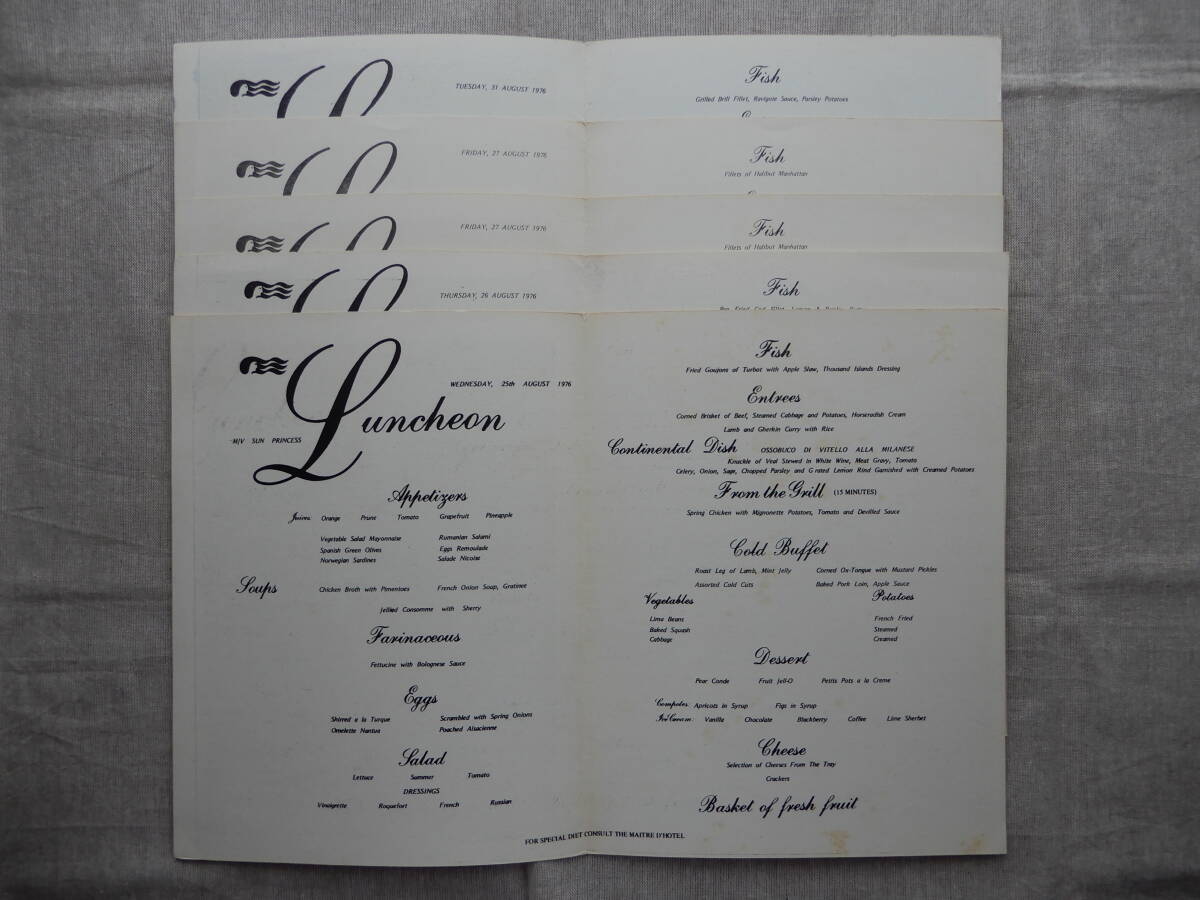 TUESDAY, 31 AUGUST 1976
Fish
Grilled Brill Fillet, Ravigote Sauce, Parsley Potatoes
FRIDAY, 27 AUGUST 1976
Fish
Fillets of Halibut Manhattan
FRIDAY, 27 AUGUST 1976
Fish
Fillets of Halibut Manhattan
THURSDAY, 26 AUGUST 1976
Fish
WEDNESDAY, 25th AUGUST 1976
Luncheon
M/V SUN PRINCESS
Appetizers
Juices: Orange Prune Tomato Grapefruit Pineapple
Vegetable Salad Mayonnaise Rumanian Salami
Spanish Green Olives Eggs Remoulade
Norwegian Sardines Salade Nicoise
Soups Chicken Broth with Pimentoes French Onion Soup, Gratinee
Jellied Consomme with Sherry
Farinaceous
Fettucine with Bolognese Sauce
Eggs
Shirred a la Turque Scrambled with Spring Onions
Omelette Nantua Poached Alsacienne
Salad
Lettuce Summer Tomato
DRESSINGS
Vinaigrette Roquefort French Russian
Fish
Fried Goujons of Turbot with Apple Slaw, Thousand Islands Dressing
Entrees
Corned Brisket of Beef, Steamed Cabbage and Potatoes, Horseradish Cream
Lamb and Gherkin Curry with Rice
Continental Dish OSSOBUCO DI VITELLO ALLA MILANESE
Knuckle of Veal Stewed in White Wine, Meat Gravy, Tomato
Celery, Onion, Sage, Chopped Parsley and Grated Lemon Rind Garnished with Creamed Potatoes
From the Grill (15 MINUTES)
Spring Chicken with Mignonette Potatoes, Tomato and Devilled Sauce
Cold Buffet
Roast Leg of Lamb, Mint Jelly Corned Ox-Tongue with Mustard Pickles
Assorted Cold Cuts Baked Pork Loin, Apple Sauce
Vegetables Potatoes
Lima Beans French Fried
Baked Squash Steamed
Cabbage Creamed
Dessert
Pear Conde Fruit Jell-O Petits Pots a la Creme
Compotes: Apricots in Syrup Figs in Syrup
Ice Cream: Vanilla Chocolate Blackberry Coffee Lime Sherbet
Cheese
Selection of Cheeses From The Tray
Crackers
Basket of fresh fruit
FOR SPECIAL DIET CONSULT THE MAITRE D'HOTEL